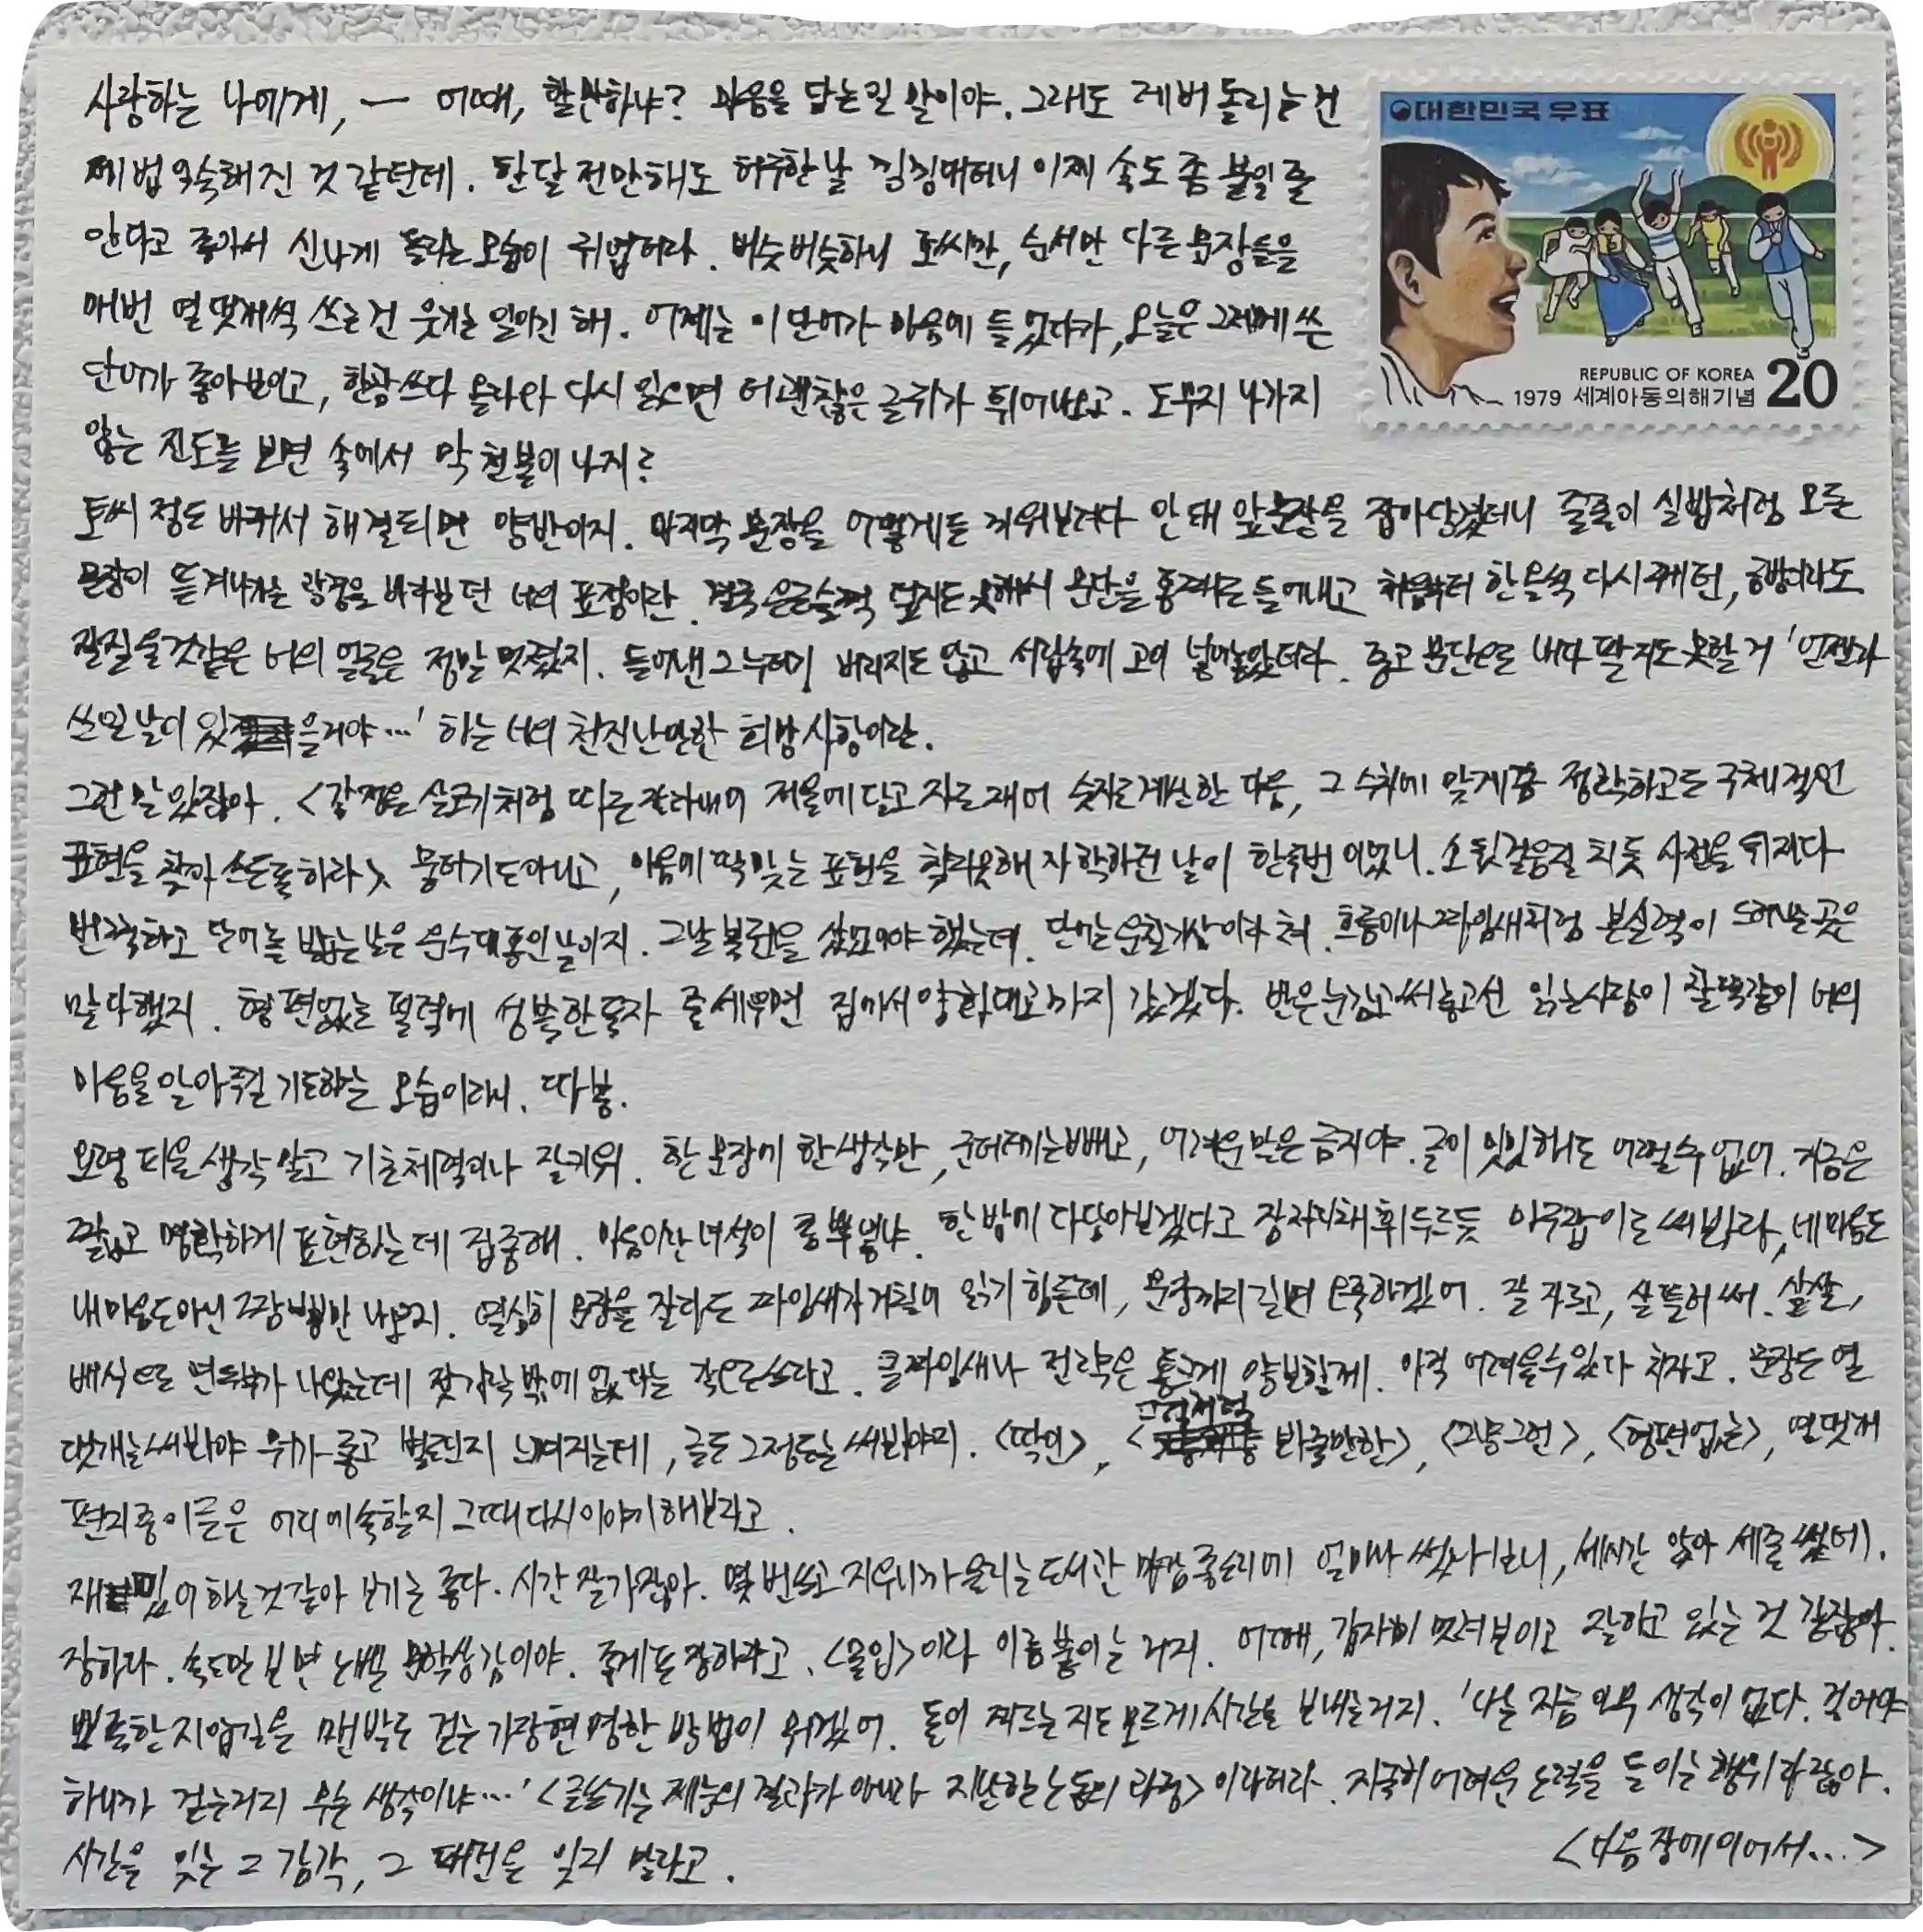 사랑하는 나에게, — 어때, 할만하냐? 마음을 담는 일 말이야. 그래도 레버 돌리는 건
제법 익숙해진 것 같던데. 한 달 전만해도 허구한 날 징징대더니 이제 속도 좀 붙일 줄
안다고 좋아서 신나게 돌리는 모습이 귀엽더라. 비슷비슷하니 토씨만, 순서만 다른 문장들을
매번 열댓개씩 쓰는 건 웃기는 일이긴 해. 어제는 이 단어가 마음에 들었다가, 오늘은 그제에 쓴
단어가 좋아보이고, 한참 쓰다 올라와 다시 읽으면 더 괜찮은 글귀가 튀어나오고. 도무지 나가지
않는 진도를 보면 속에서 막 천불이 나지?
토씨 정도 바꿔서 해결되면 양반이지. 마지막 문장을 어떻게든 끼워보려다 안돼 앞문장을 잡아당겼더니 줄줄이 실밥처럼 모든
문장이 뜯겨나가는 광경을 바라보던 너의 표정이란. 결국 은근슬쩍 덮지도 못해서 문단을 통째로 들어내고 처음부터 한 올씩 다시 꿰던, 금방이라도
질질 울것같은 너의 얼굴은 정말 멋졌지. 들어낸 그 누더기 버리지도 않고 서랍속에 고이 넣어놓았더라. 중고 문단으로 내다 팔지도 못할 거 '언젠가
쓰일 날이 있을거야…' 하는 너의 천진난만한 희망사항이란.
그런 말 있잖아. <감정을 살코기처럼 따로 잘라내어 저울에 달고 자로 재어 숫자로 계산한 다음, 그 수치에 맞게끔 정확하고도 구체적인
표현을 찾아 쓰도록 하라> 뭉하기도 아니고, 마음에 딱 맞는 표현을 찾지못해 자학하던 날이 한두번 이었니. 소 뒷걸음질 치듯 사전을 뒤지다
번쩍하고 단어를 밟는 날은 운수대통인 날이지. 그날 복권을 샀었어야 했는데. 단어는 운칠기삼이라 쳐. 흐름이나 짜임새처럼 본 실력이 드러나는 곳은
말 다했지. 형편없는 필력에 성불한 독자 줄 세우면 집에서 양화대교까지 갔겠다. 반은 눈감고 써놓고선 읽는 사람이 찰떡같이 너의
마음을 알아주길 기도하는 모습이라니. 따봉.
요령 피울 생각 말고 기초체력이나 잘 키워. 한 문장에 한 생각만, 군더더기는 빼고, 어려운 말은 금지야. 글이 밋밋해도 어쩔 수 없어. 지금은
짧고 명확하게 표현하는 데 집중해. 마음이란 녀석이 콩 뿌 볼냐. 한 방에 다 담아보겠다고 장작 패 휘두르듯 마구잡이로 써봐라, 네 마음도
내 마음도 아닌 그랑 뻥만 나오지. 열심히 문장을 잘라도 짜임새가 거칠어 읽기 힘든데, 문장까지 길면 오죽하겠어. 잘 자르고, 살 뜰어 써. 살살,
배식으로 연두부가 나왔는데 젓가락 밖에 없다는 각오로 쓰라고. 큰 짜임새나 전략은 통크게 양보할게. 아직 어려울 수 있다 치자고. 문장도 열
댓개는 써봐야 뭐가 좋고 별론지 느껴지는데, 글도 그정도는 써봐야지. <딱인>, <그럭저럭 봐줄만한>, <그냥 그런>, <형편없는>, 열댓개
편지 중 이 글은 어디에 속할지 그때 다시 이야기해보라고.
재밌어 하는 것 같아 보기는 좋다. 시간 잘 가잖아. 몇 번 쓰고 지우니까 울리는 도서관 마감 종소리에 얼마나 썼나 보니, 세시간 앉아 세줄 썼데.
장하다. 속도만 보면 노벨 문학상감이야. 좋게도 장하다고. <몰입>이라 이름 붙이는 거지. 어때, 갑자기 멋져 보이고 잘하고 있는 것 같잖아.
뾰족한 지압길을 맨발로 걷는 가장 현명한 방법이 뭐겠어. 돌이 찌르는지도 모르게 시간을 보내는 거지. '나는 지금 아무 생각이 없다. 걸어야
하니까 걷는거지 무슨 생각이냐…' <글쓰기는 재능의 결과가 아니라 지난한 노동의 과정>이라더라. 지극히 어려운 노력을 들이는 행위라잖아.
시간을 잊는 그 감각, 그 태연을 잊지 말라고.
<다음 장에 이어서…>
대한민국우표
REPUBLIC OF KOREA
1979 세계아동의해기념 20